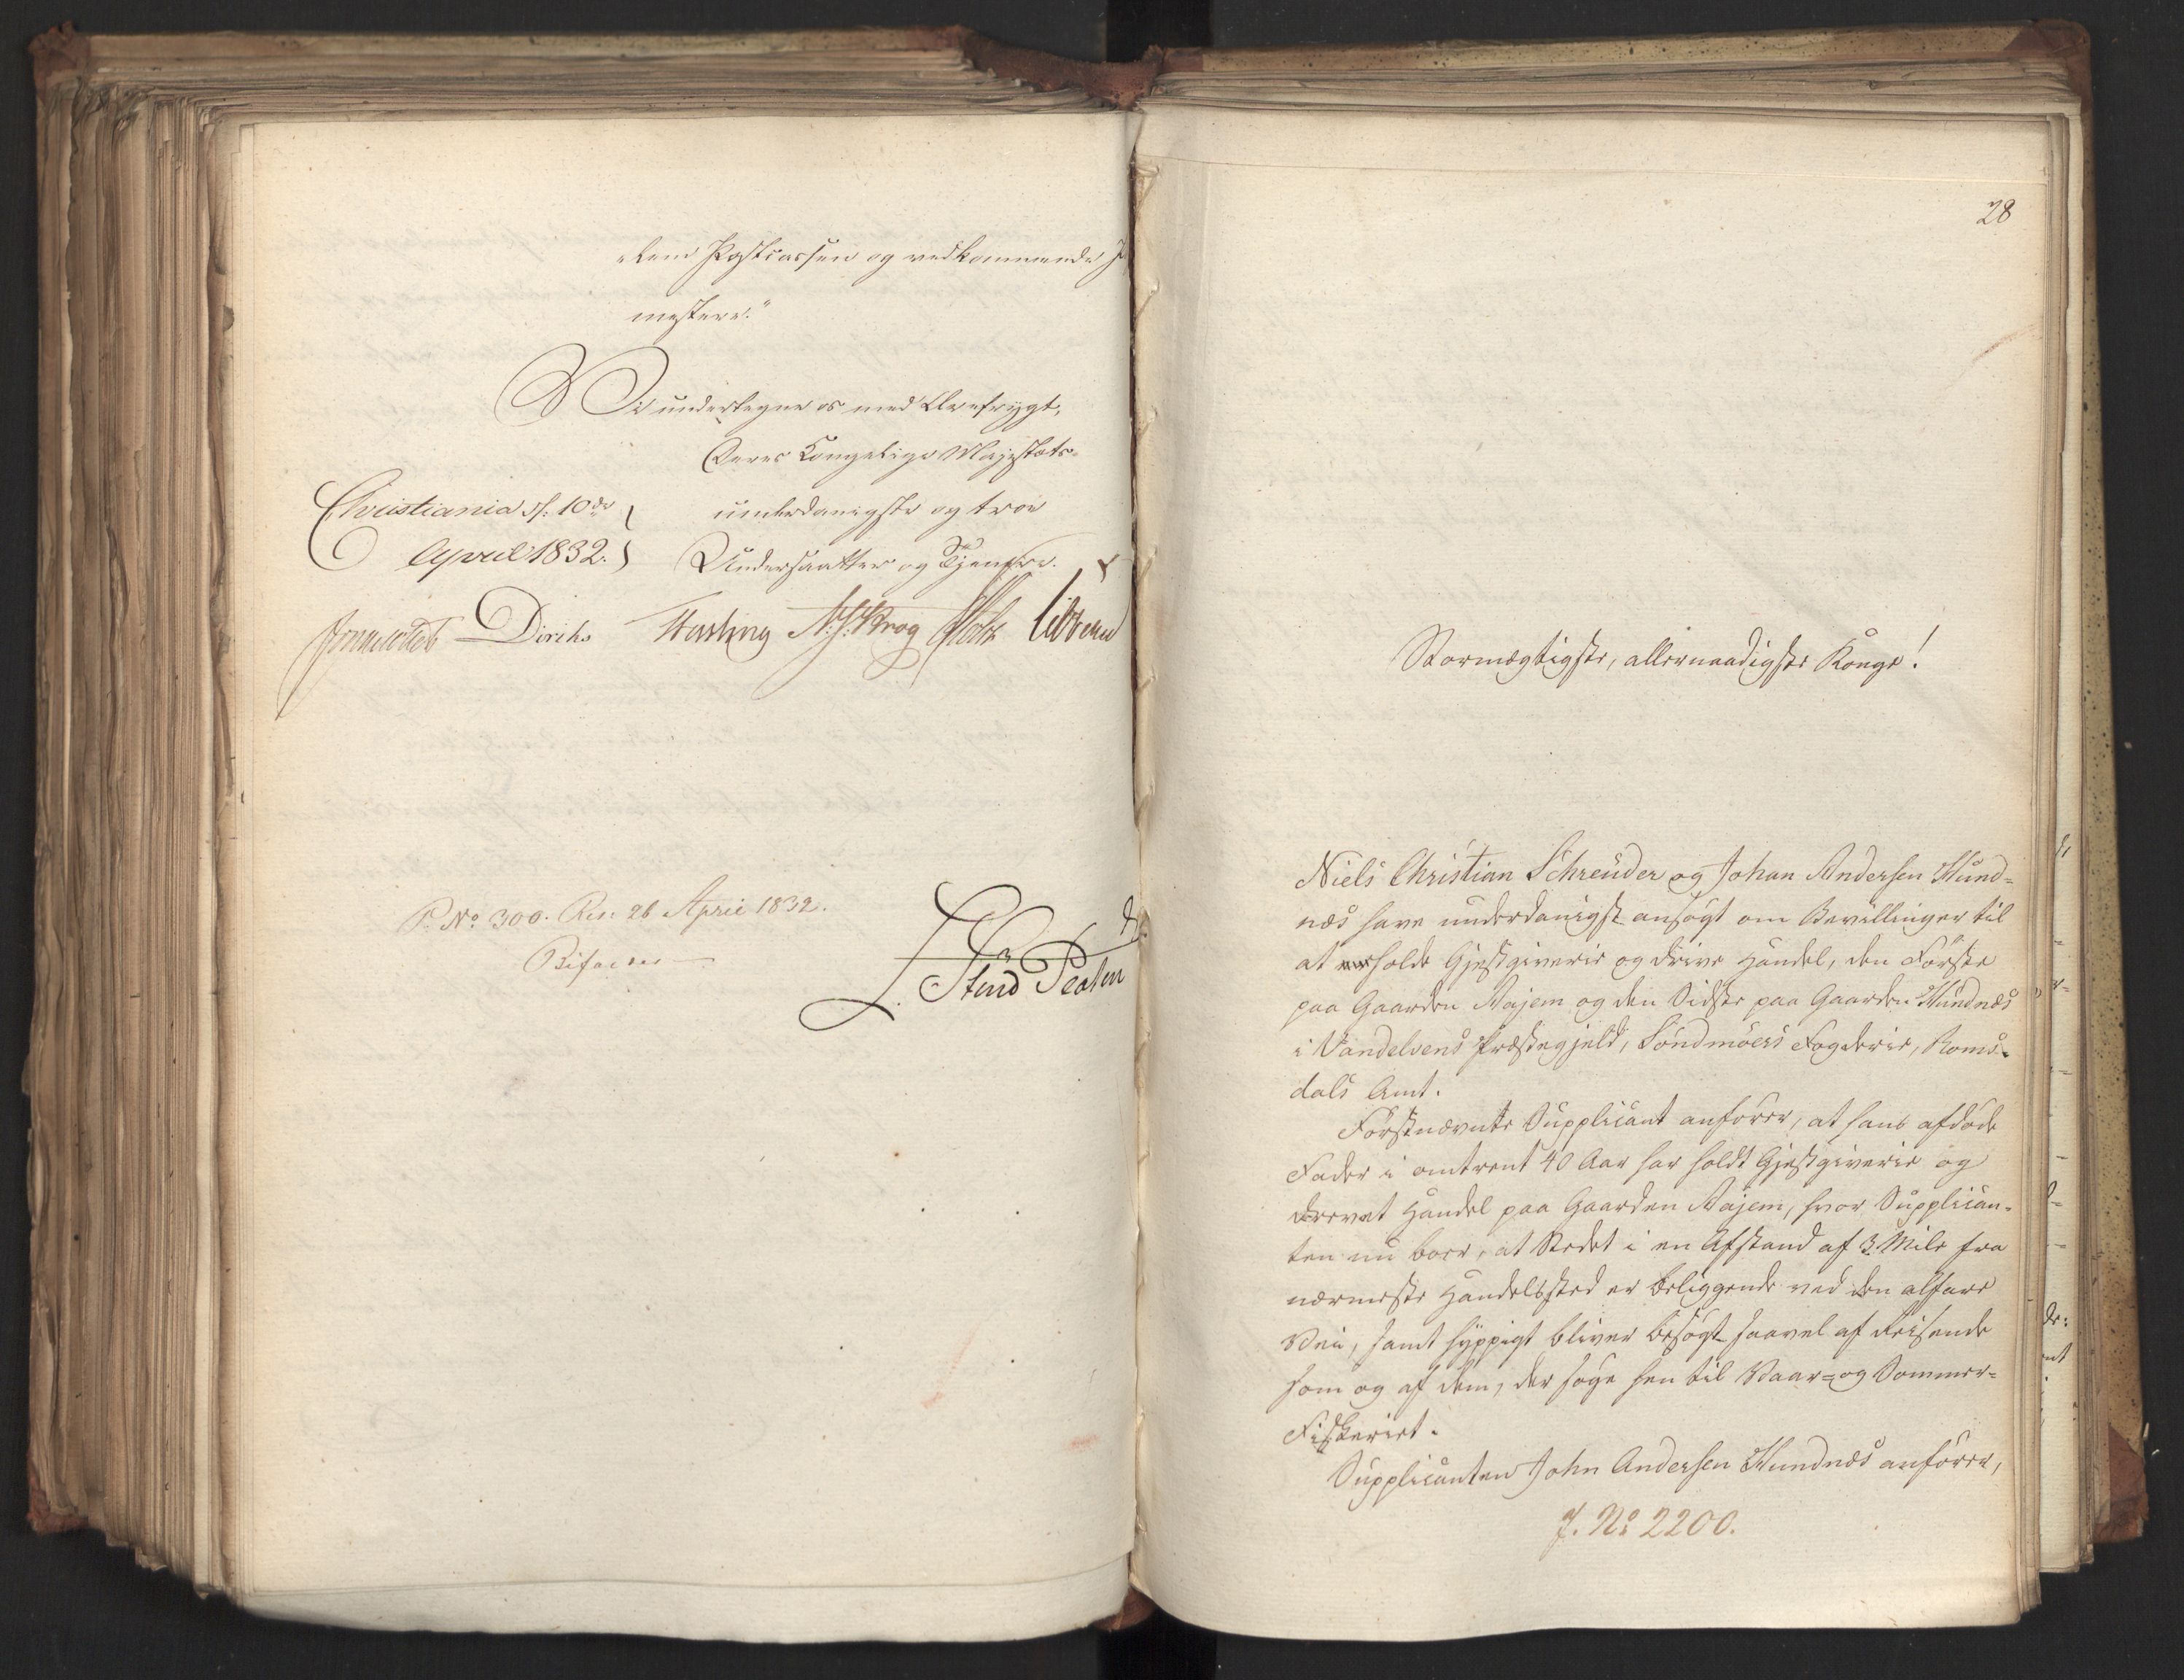 "lem Postcassen og vedkommende
mestere."
Vi undertegne os med Ærefrygt,
Deres Kongelige Majestæts
underdanigste og troe
Undersaatter og Tjenere.
Christiania d: 10de
April 1832.
Diriks N. J. Krog
P. No 300. Res: 26 April 1832.
Bifaldes
28
Stormægtigste, allernaadigste Konge!
Niels Christian Schreuder og Johan Andersen Hund=
næs have underdanigst ansøgt om Bevillinger til
at holde Gjestgiverie og drive Handel, den Første
paa Gaarden Aajem og den Sidste paa Gaarden Hundnæs
i Vandelvens Præstegjeld, Søndmøers Fogderie, Roms=
dals Amt.
Førstnævnte Supplicant anfører, at hans afdøde
Fader i omtrent 40 Aar har holdt Gjestgiverie og
drevet Handel paa Gaarden Aajem, hvor Supplican=
ten nu boer, at Stedet i en Afstand af 3 Mile fra
nærmeste Handelssted er beliggende ved den alfare
Vei, samt hyppigt bliver besøgt saavel af Reisende
som og af dem, der søge hen til Vaar= og Sommer=
Fiskeriet.
Supplicanten John Andersen Hundnæs anfører,
J. No 2200.